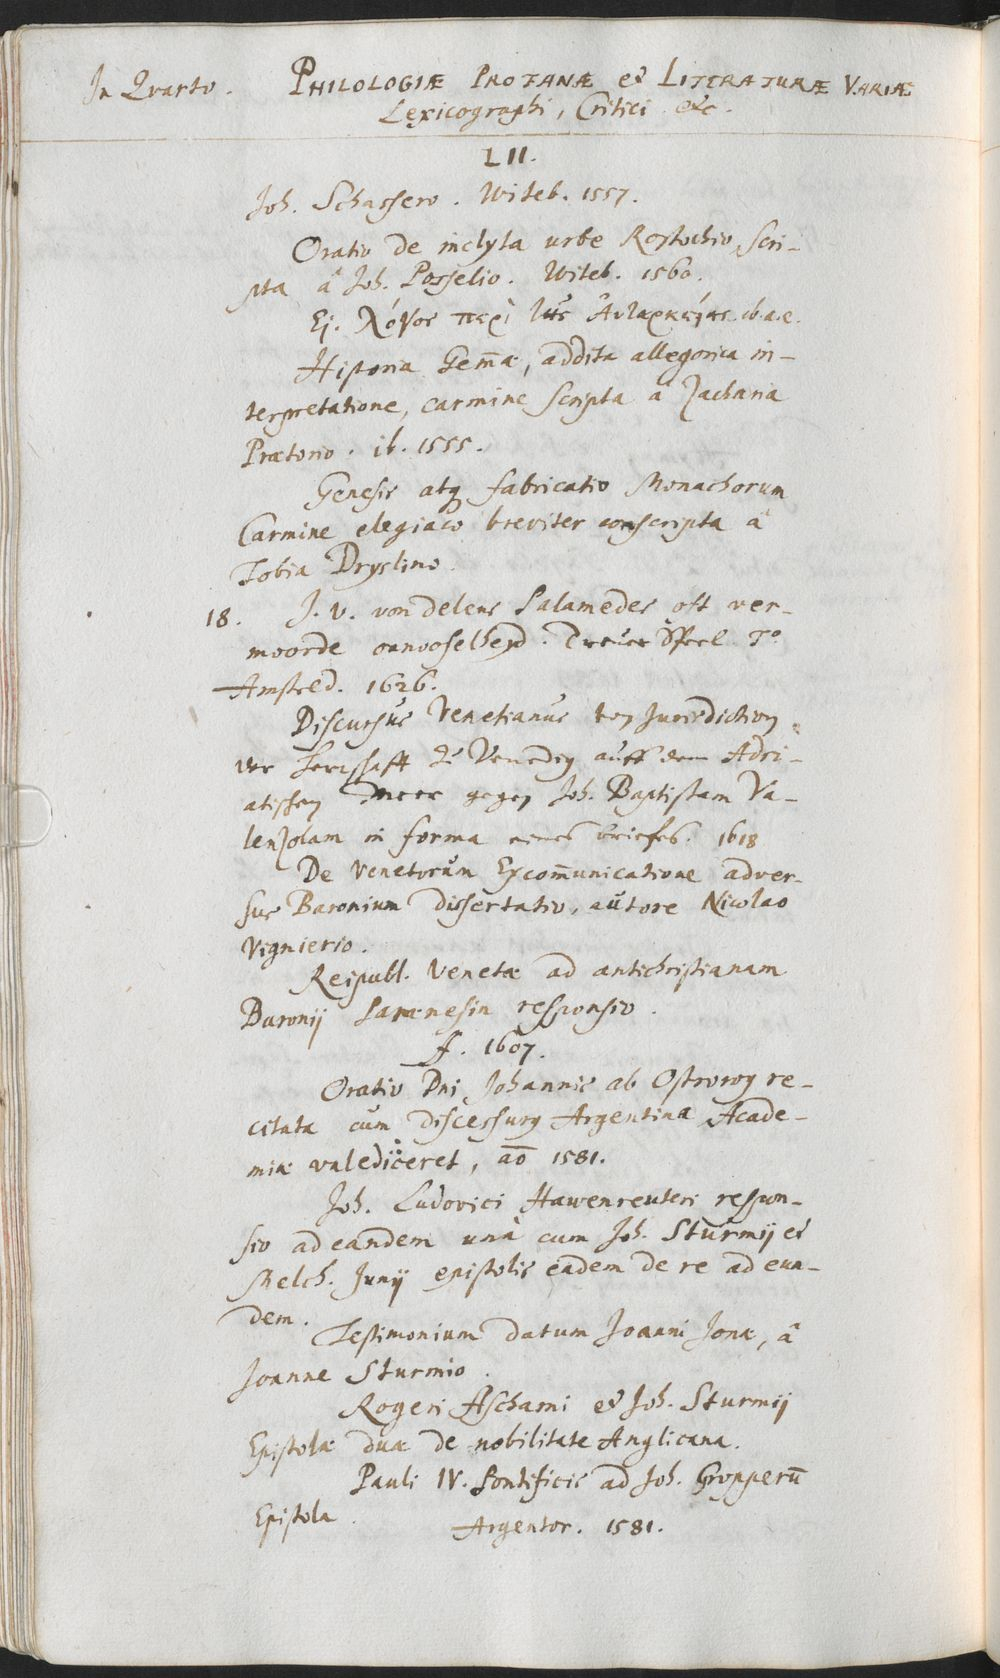 In Qvarto. PHILOLOGIÆ PROFANÆ et LITERATURÆ VARIÆ
Lexicographi, Critici &c.
LII.
Joh. Schassero. Witeb. 1557.
Oratio de inclyta urbe Rostochio, scri-
pta â Joh. Posselio. Witeb. 1560.
Ej. λόγος περὶ τῆς Ἀυταρκείας. ib. a. e.
Historia Gem̄æ, addita allegorica in-
terpretatione, carmine scripta â Zacharia
Prætorio. ib. 1555.
Genesis atq fabricatio Monachorum
Carmine elegiaco breviter conscripta â
Tobia Dryslino.
18. J. v. vondelens Palamedes oft ver-
moorde onnooselheyd. Treuer Speel. To
Amsteld. 1626.
Discursus Venetianus von Jurisdiction
der Herrschafft zu Venedig auff dem Adri-
atischen Meer gegen Joh. Baptistam Va-
lenzolam in forma eines briefes. 1618
De Venetorum Excom̄unicatione adver-
sus Baronium dissertatio, autore Nicolao
Vignierio.
Reipubl. Venetæ ad antichristianam
Baronij Parænesin responsio.
f. 1607.
Oratio Dni Johannis ab Ostrorog re-
citata cum discessurg Argentina Acade-
miæ valediceret, aō 1581.
Joh. Ludovici Hawenreuteri respon-
sio ad eandem unà cum Joh. Sturmij et
Melch. Junij epistolis eadem de re ad eun-
dem.
Testimonium datum Joanni Jonæ, â
Joanne Sturmio.
Rogeri Aschami et Joh. Sturmij
Epistolæ duæ de nobilitate Anglicana.
Pauli IV. Pontificis ad Joh. Gropperū
Epistola.
Argentor. 1581.